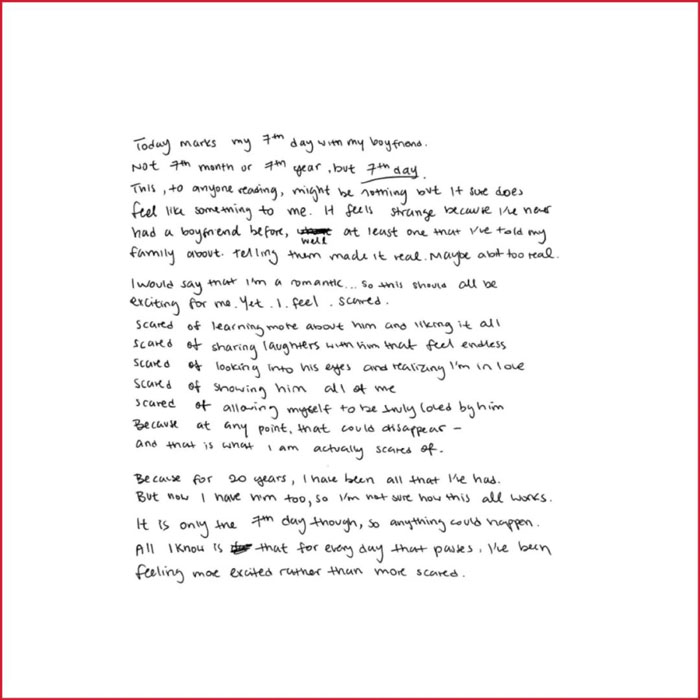 Today marks my 7th day with my boyfriend.
Not 7th month or 7th year, but 7th day.
This, to anyone reading, might be nothing but it sure does
feel like something to me. It feels strange because I've never
had a boyfriend before, well at least one that I've told my
family about. Telling them made it real. Maybe a bit too real.
I would say that I'm a romantic... so this should all be
exciting for me. Yet. I. feel. scared.
scared of learning more about him and liking it all
scared of sharing laughters with him that feel endless
scared of looking into his eyes and realizing I'm in love
scared of showing him all of me
scared of allowing myself to be truly loved by him
Because at any point, that could disappear –
and that is what I am actually scared of.
Because for 20 years, I have been all that I've had.
But now I have him too, so I'm not sure how this all works.
It is only the 7th day though, so anything could happen.
All I know is that for every day that passes, I've been
feeling more excited rather than more scared.